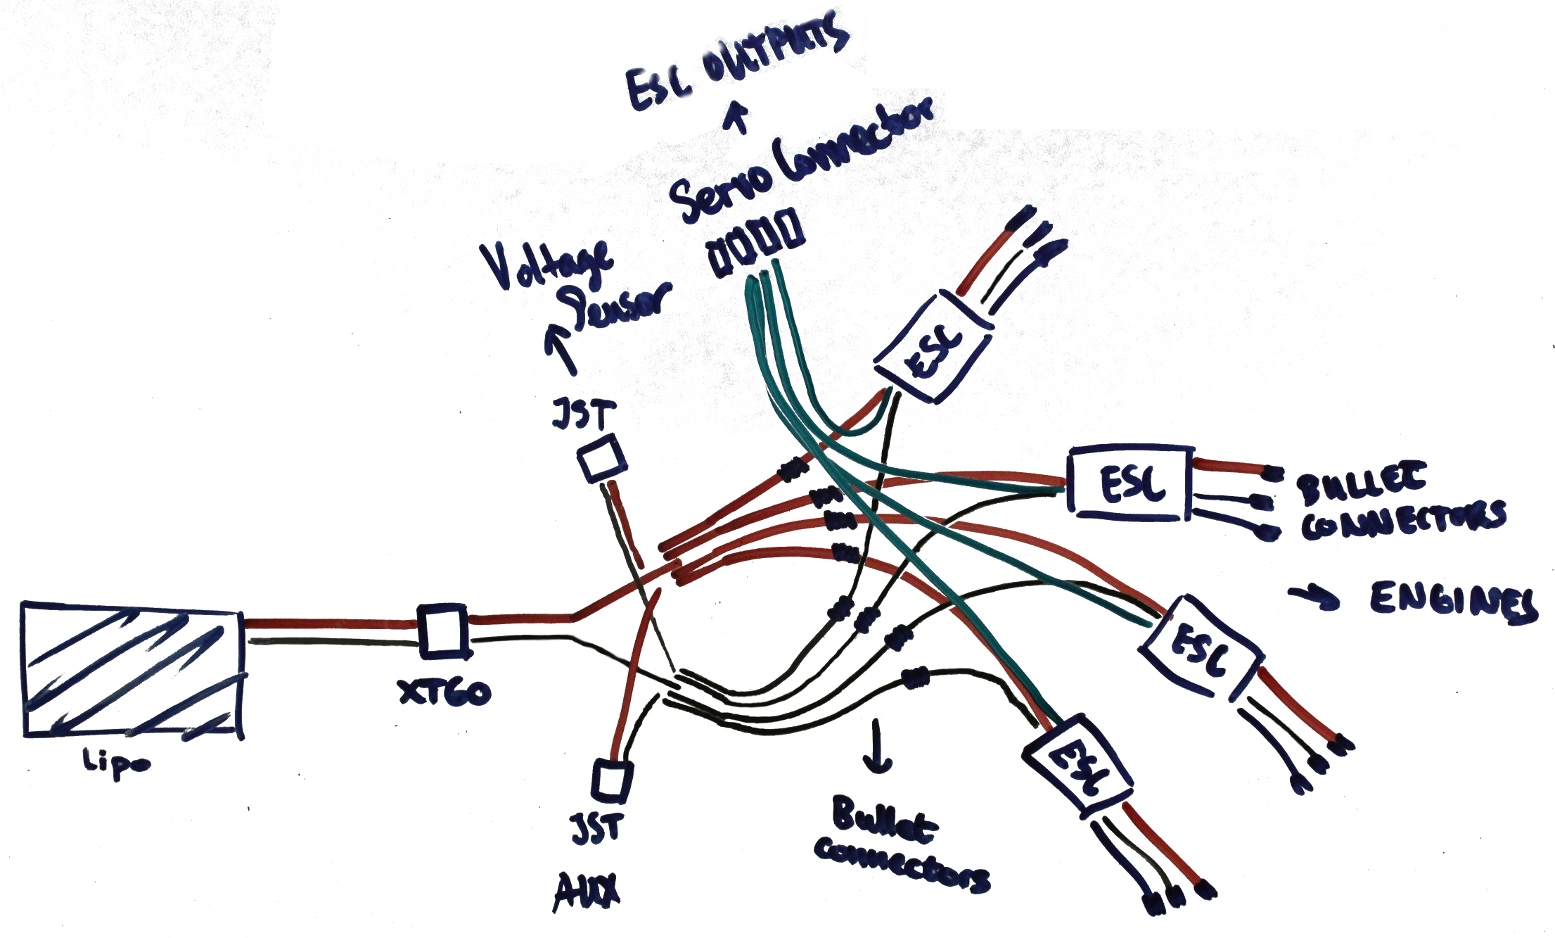 ESC OUTPUTS
Servo Connector
Voltage
Sensor
JST
ESC
ESC
BULLET
CONNECTORS
ENGINES
ESC
ESC
XT60
Lipo
JST
AUX
Bullet
connectors